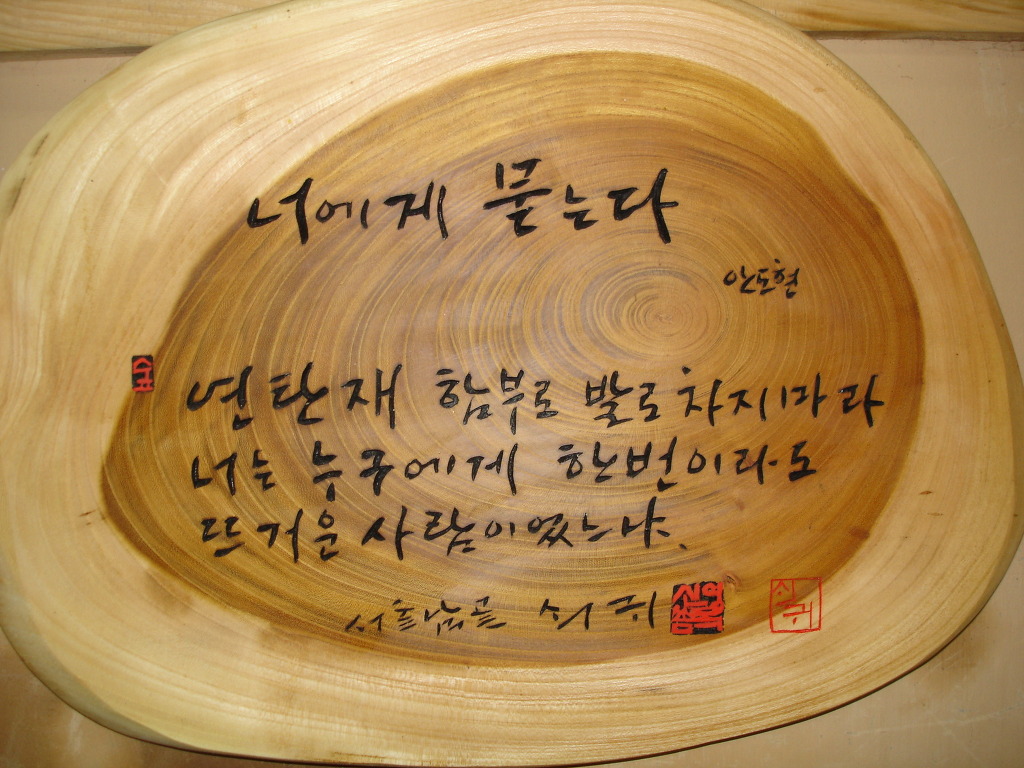 너에게 묻는다
안도현
연탄재 함부로 발로 차지 마라
너는 누구에게 한번이라도
뜨거운 사람이었느냐.
쇠귀